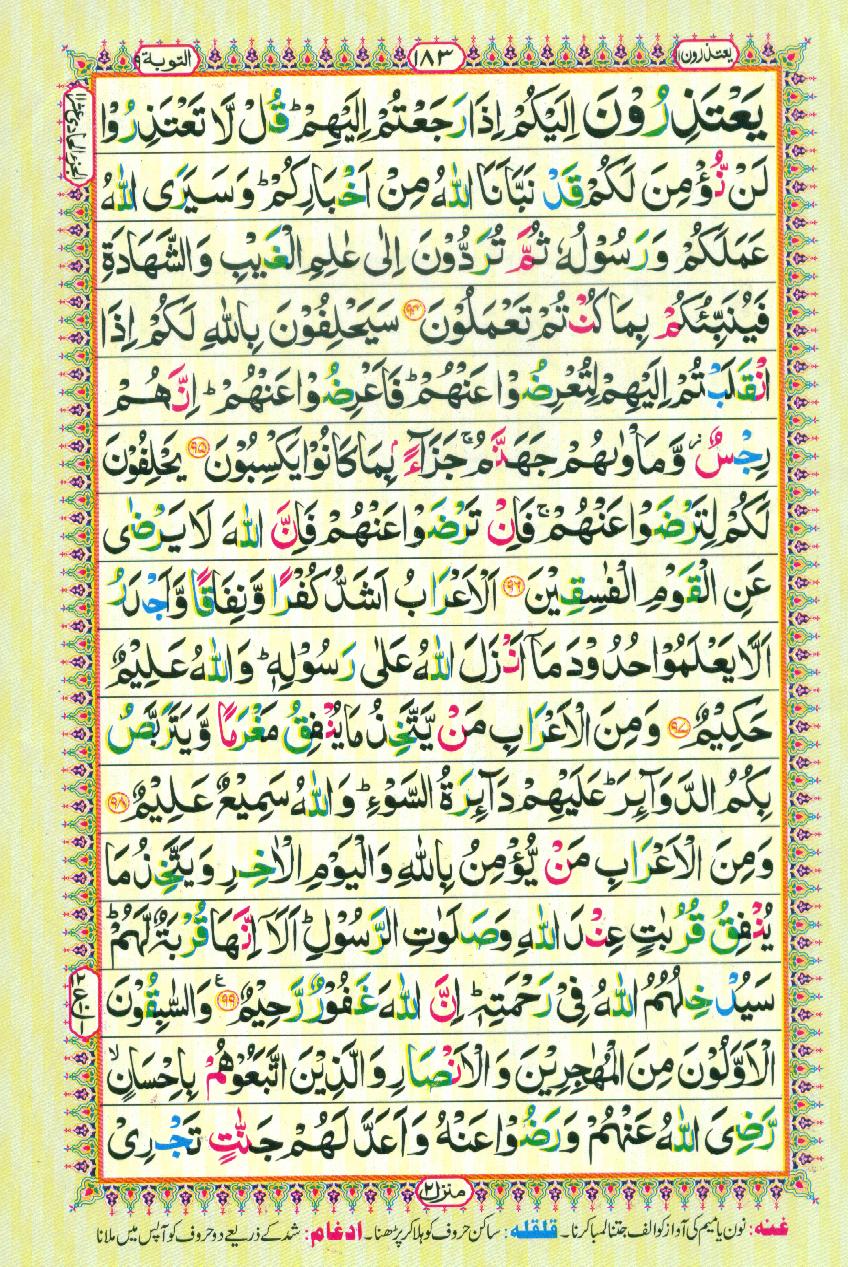 یعتذرون ۱۱
۱۸۳
التوبة ۹
الجزء الحادی عشر
یَعْتَذِرُوْنَ اِلَیْكُمْ اِذَا رَجَعْتُمْ اِلَیْهِمْ ؕ قُلْ لَّا تَعْتَذِرُوْا
لَنْ نُّؤْمِنَ لَكُمْ قَدْ نَبَّاَنَا اللّٰهُ مِنْ اَخْبَارِكُمْ ؕ وَ سَیَرَی اللّٰهُ
عَمَلَكُمْ وَ رَسُوْلُهٗ ثُمَّ تُرَدُّوْنَ اِلٰی عٰلِمِ الْغَیْبِ وَ الشَّهَادَةِ
فَیُنَبِّئُكُمْ بِمَا كُنْتُمْ تَعْمَلُوْنَ ۹۴ سَیَحْلِفُوْنَ بِاللّٰهِ لَكُمْ اِذَا
انْقَلَبْتُمْ اِلَیْهِمْ لِتُعْرِضُوْا عَنْهُمْ ؕ فَاَعْرِضُوْا عَنْهُمْ ؕ اِنَّهُمْ
رِجْسٌ ؗ وَّ مَاْوٰىهُمْ جَهَنَّمُ ۚ جَزَآءًۢ بِمَا كَانُوْا یَكْسِبُوْنَ ۹۵ یَحْلِفُوْنَ
لَكُمْ لِتَرْضَوْا عَنْهُمْ ۚ فَاِنْ تَرْضَوْا عَنْهُمْ فَاِنَّ اللّٰهَ لَا یَرْضٰی
عَنِ الْقَوْمِ الْفٰسِقِیْنَ ۹۶ اَلْاَعْرَابُ اَشَدُّ كُفْرًا وَّ نِفَاقًا وَّ اَجْدَرُ
اَلَّا یَعْلَمُوْا حُدُوْدَ مَاۤ اَنْزَلَ اللّٰهُ عَلٰی رَسُوْلِهٖ ؕ وَ اللّٰهُ عَلِیْمٌ
حَكِیْمٌ ۹۷ وَ مِنَ الْاَعْرَابِ مَنْ یَّتَّخِذُ مَا یُنْفِقُ مَغْرَمًا وَّ یَتَرَبَّصُ
بِكُمُ الدَّوَآئِرَ ؕ عَلَیْهِمْ دَآئِرَةُ السَّوْءِ ؕ وَ اللّٰهُ سَمِیْعٌ عَلِیْمٌ ۹۸
وَ مِنَ الْاَعْرَابِ مَنْ یُّؤْمِنُ بِاللّٰهِ وَ الْیَوْمِ الْاٰخِرِ وَ یَتَّخِذُ مَا
یُنْفِقُ قُرُبٰتٍ عِنْدَ اللّٰهِ وَ صَلَوٰتِ الرَّسُوْلِ ؕ اَلَاۤ اِنَّهَا قُرْبَةٌ لَّهُمْ ؕ
سَیُدْخِلُهُمُ اللّٰهُ فِیْ رَحْمَتِهٖ ؕ اِنَّ اللّٰهَ غَفُوْرٌ رَّحِیْمٌ ۹۹ ع وَ السّٰبِقُوْنَ
الْاَوَّلُوْنَ مِنَ الْمُهٰجِرِیْنَ وَ الْاَنْصَارِ وَ الَّذِیْنَ اتَّبَعُوْهُمْ بِاِحْسَانٍ ۙ
رَّضِیَ اللّٰهُ عَنْهُمْ وَ رَضُوْا عَنْهُ وَ اَعَدَّ لَهُمْ جَنّٰتٍ تَجْرِیْ
منزل ۲
غنه: نون یا میم کی آواز کو الف جتنا لمبا کرنا۔ قلقله: ساکن حروف کو ہلا کر پڑھنا۔ ادغام: شد کے ذریعے دو حروف کو آپس میں ملانا